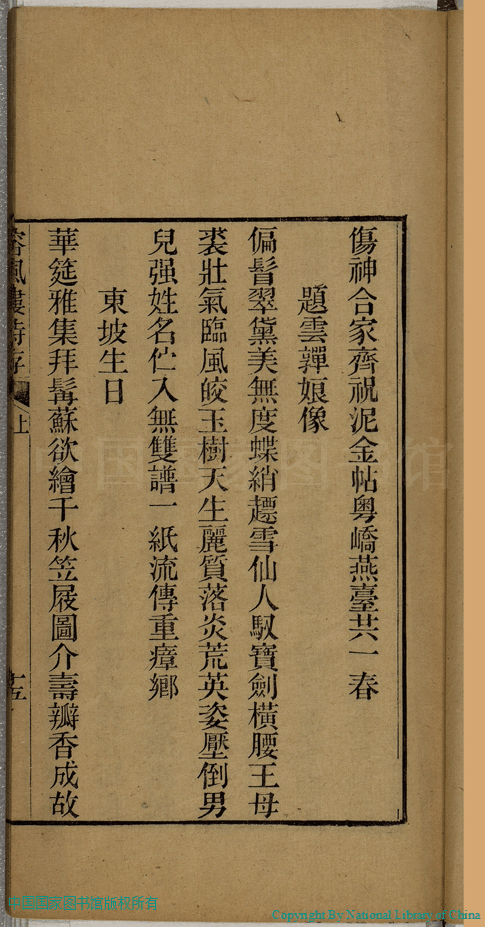 傷神合家齊祝泥金帖粵嶠燕臺共一春
題雲嚲娘像
偏髾翠黛美無度蝶綃䟿雪仙人馭寶劍橫腰王母
裘壯氣臨風皎玉樹天生麗質落炎荒英姿壓倒男
兒强姓名伫入無雙譜一紙流傳重瘴鄉
東坡生日
華筵雅集拜髯蘇欲繪千秋笠屐圖介壽瓣香成故
風樓詩存
上
十五
中国国家图书馆版权所有
Copyright By National Library of China